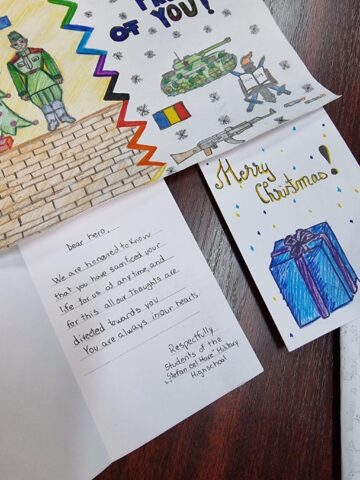 OF YOU!
Merry
Christmas!
Dear hero,
We are honored to know
that you have sacrificed your
life for us at any time, and
for this all our thoughts are
directed towards you
You are always in our hearts.
Respectfully,
Students of the
"Ștefan cel Mare" Military
Highschool